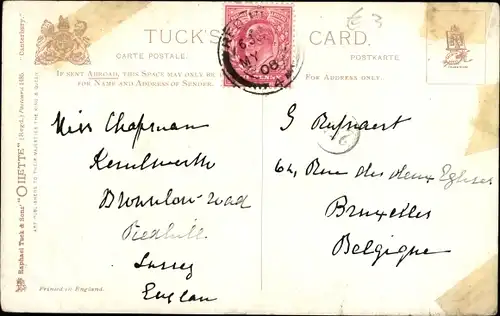 TUCK'S
CARD.
CARTE POSTALE.
POSTKARTE
IF SENT ABROAD, THIS SPACE MAY ONLY BE
FOR NAME AND ADDRESS OF SENDER.
FOR ADDRESS ONLY.
£3
Miss Chapman
Kenilworth
Brownlow-road
Redhill
Surrey
England
Printed in England.
G
64, Rue des deux Eglises
Bruxelles
Belgique
Raphael Tuck & Sons' "OILETTE" (Regd.) Postcard
Canterbury.
ART PUBLISHERS TO THEIR MAJESTIES THE KING & QUEEN